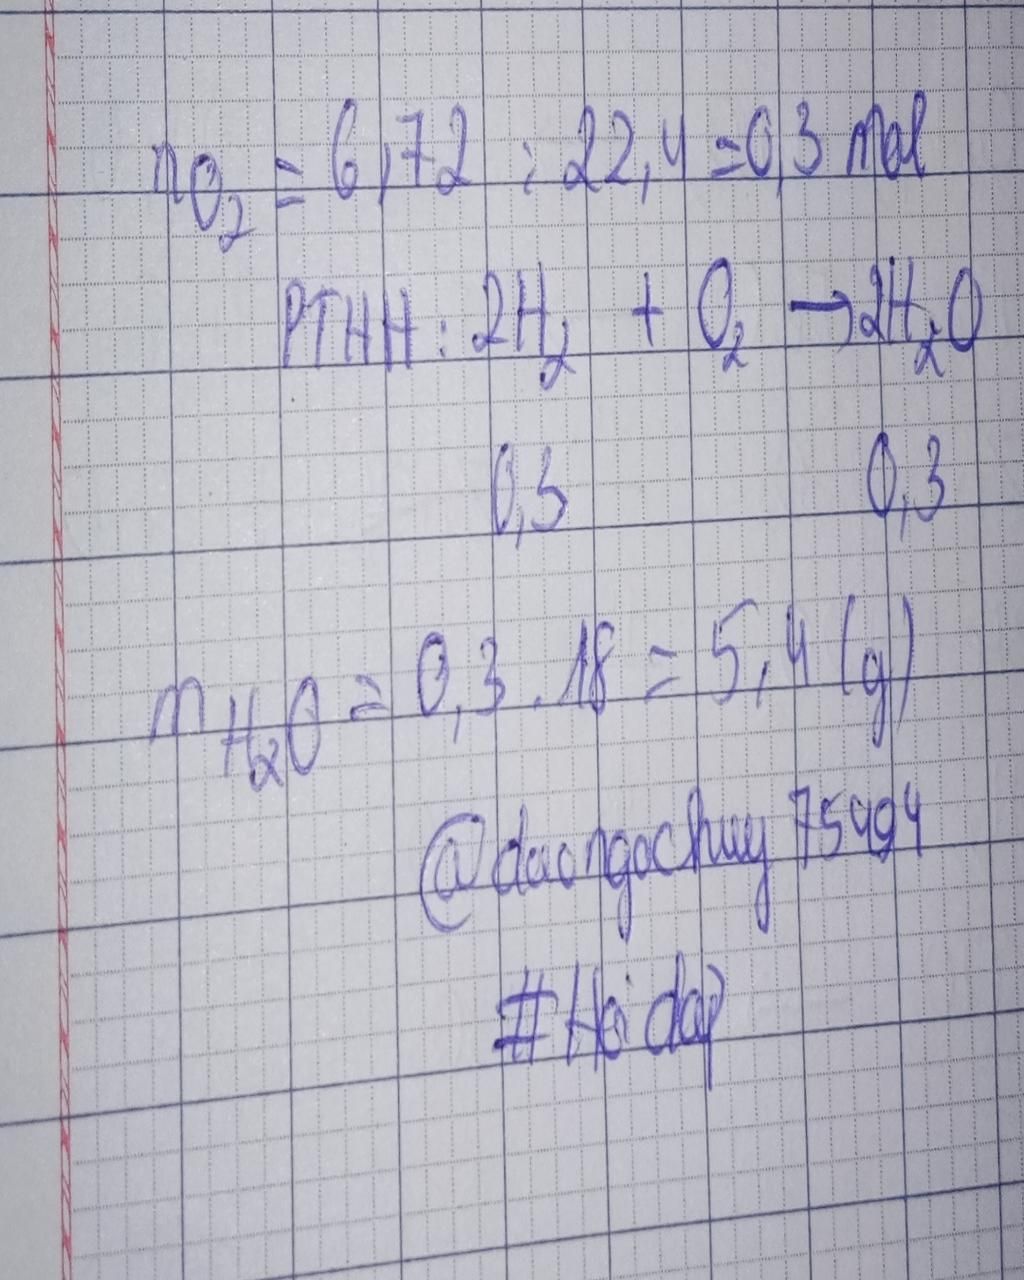 nO₂ = 6,72 : 22,4 = 0,3 mol
PTHH : 2H₂ + O₂ → 2H₂O
0,3 0,3
mH₂O = 0,3 . 18 = 5,4 (g)
@daongochuy75494
#Hoidap